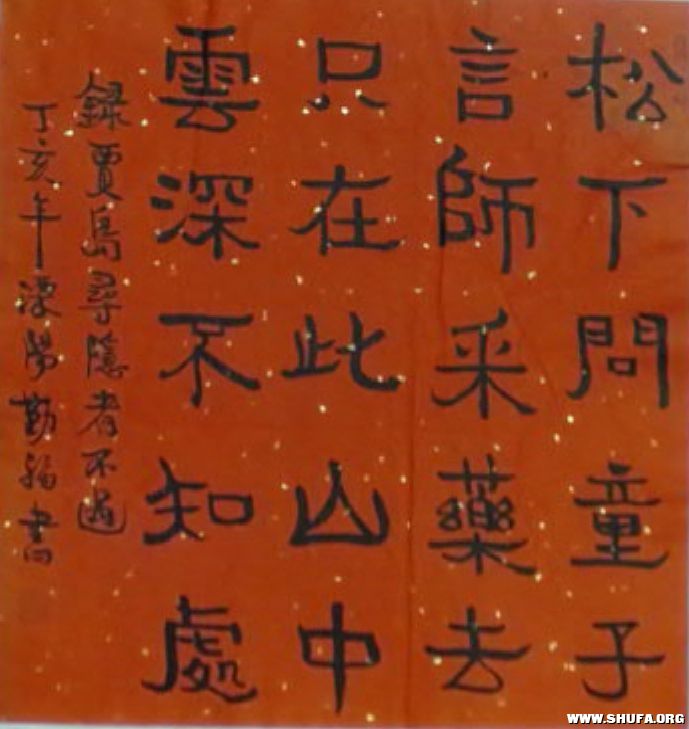 松下問童子
言師采藥去
只在此山中
雲深不知處
録賈島尋隱者不遇
丁亥年溧陽勤福書
WWW.SHUFA.ORG